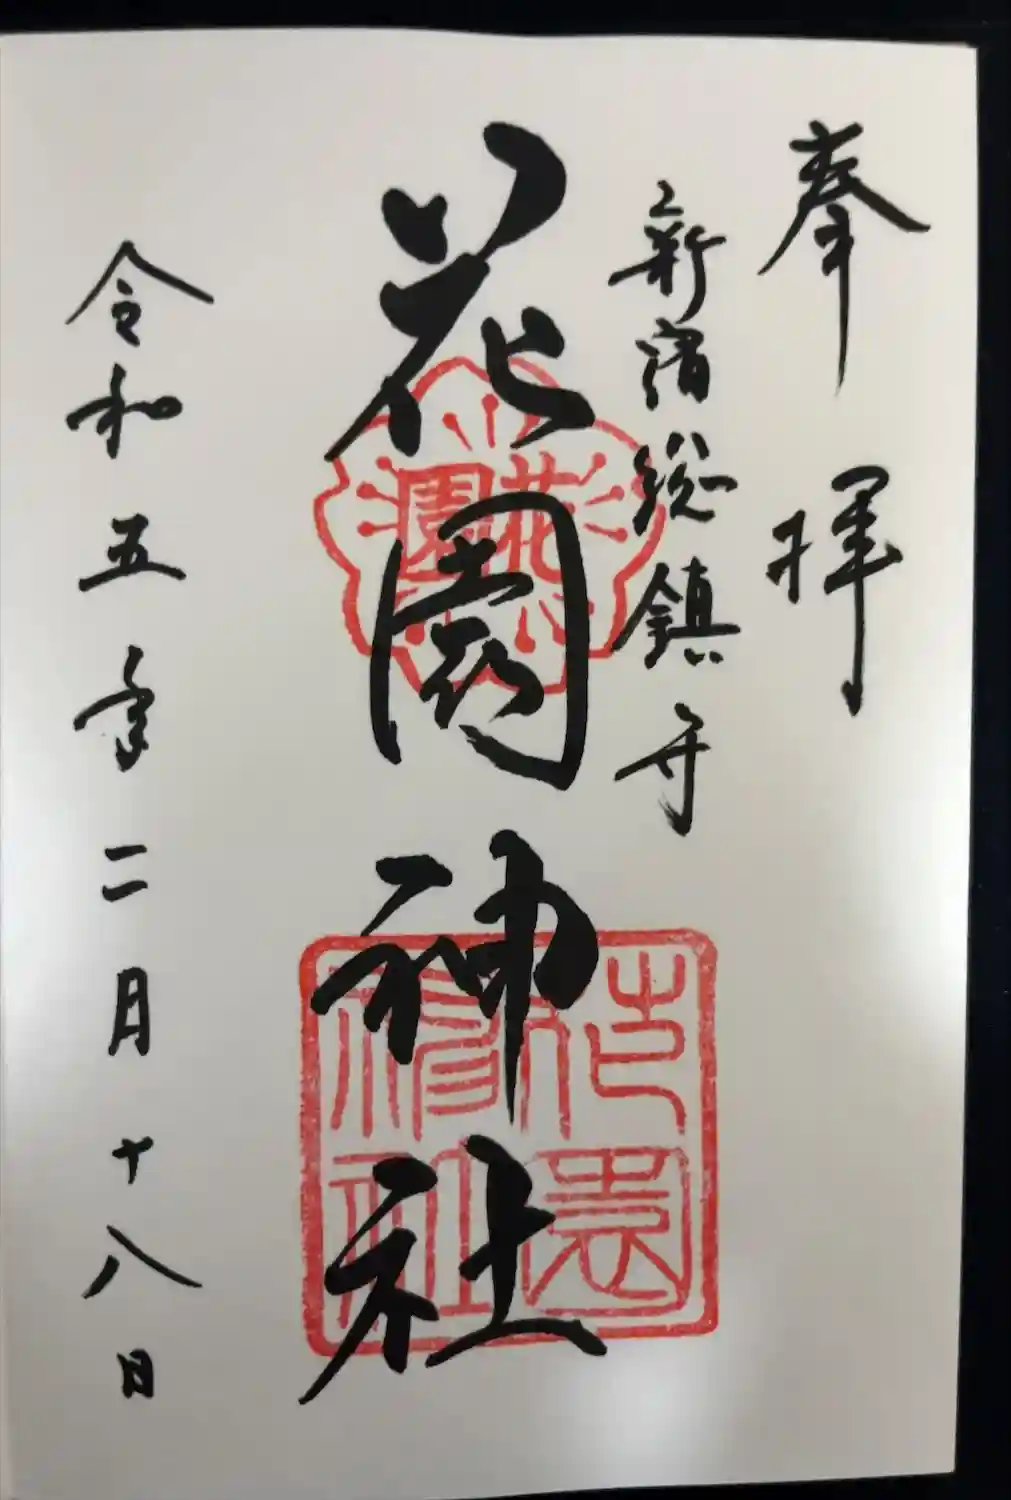 奉拝
新宿総鎮守
花園神社
花園
花園神社
令和五年二月十八日